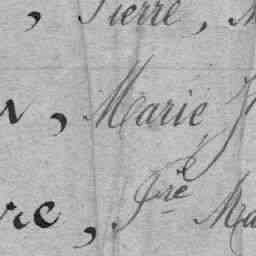 , Pierre, M
, Marie J
re, Jre Ma